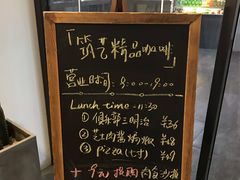 「筑艺精品咖啡」
营业时间: 9:00-19:00
Lunch time - 11:30
① 俱乐部三明治 ¥36
② 芝士肉酱焗饭 ¥48
③ Pizza(七寸) ¥68
+ 9元